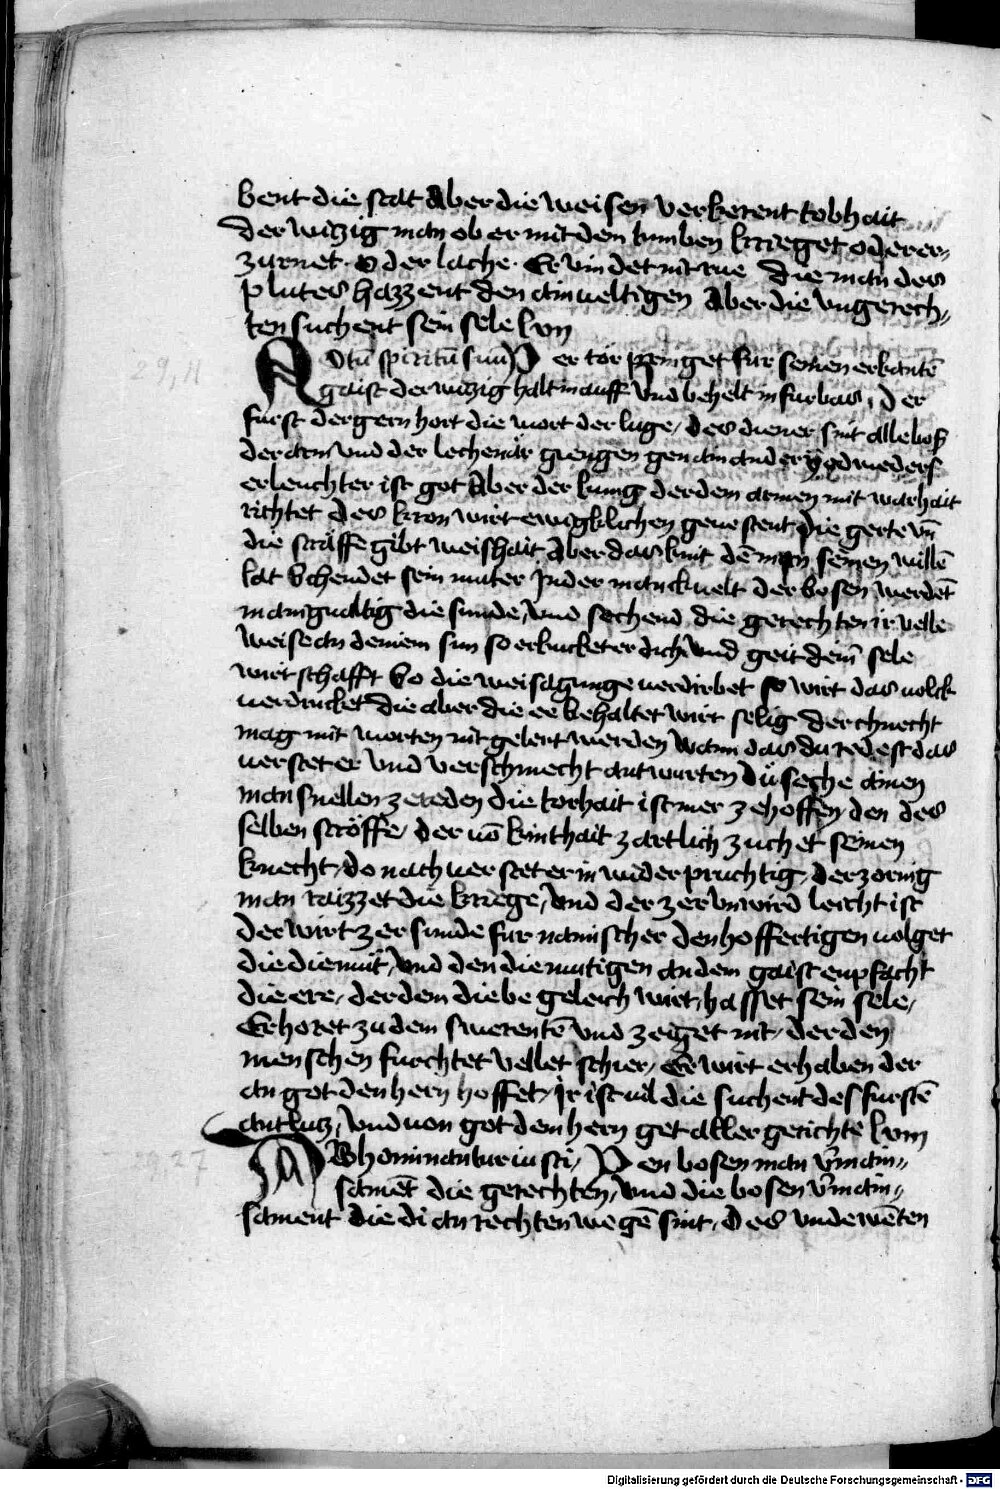 bent die stat Aber die weisen verkerent tobhait
der witzig man ob er mit dem tumben krieget oder er„
zurnet · oder lache · Er vindet nit rue die man des
plutes hazzent den ainueltigen Aber die vngerech„
ten suchent sein sele lvn
29,11
Otū spiritū suū D er tor pringet fur seinen erkantē
gaist der witzig halt in auff vnd behelt in furbas, der
furst der gern hort die wort der luge, des diener sint alle boß
der arm vnd der lechenär giengen gen ain ander yedweders
erleuchter ist got Aber der kunig der dem armen mit warhait
richtet des kron wirt ewigklichen geuestent die gerte vñ
die straffe gibt weishait Aber das kint dē man seinen willē
lat schendet sein muter In der manckuelt der bosen werdēt
manigualtig die sunde, vnd sechend die gerechten ir velle
weise an deniem sun so erkucket er dich vnd geit deinē sele
wirtschafft So die weisagunge verdirbet so wirt das volck
verdrucket die aber die ee behaltet wirt selig der chnecht
mag mit worten nit gelert werden wann das du redest das
verstet er vnd verschmecht antwurten Du seche ainen
man snellen ze reden die torhait ist mer ze hoffen den des
selben ströffe, der vō kinthait zartlich zuchet seinen
knecht, do nach verstet er in widerpruchtig, der zornig
man raizzet die kriege, vnd der zer vnwird leicht ist
der wirt zer sunde fur namischer den hoffertigen volget
die diemüt, vnd den diemutigen an dem gaist enpfacht
die ere, der dem diebe geleich wirt, hasset sein sele,
Er horet zu dem swerentē vnd zeiget nit, der den
menschen furchtet vellet schier, Er wirt erhaben der
an got den hern hoffet, Ir ist vil die suchent des furstē
antlutz, vnd von got dem hern get aller gerichte lvm
29,27
ABhominantur iusti, D en bosen man v̄main„
samēt die gerechten, vnd die bosen v̄main„
sament die di an rechten wegē sint, des vndewēten
Digitalisierung gefördert durch die Deutsche Forschungsgemeinschaft - DFG